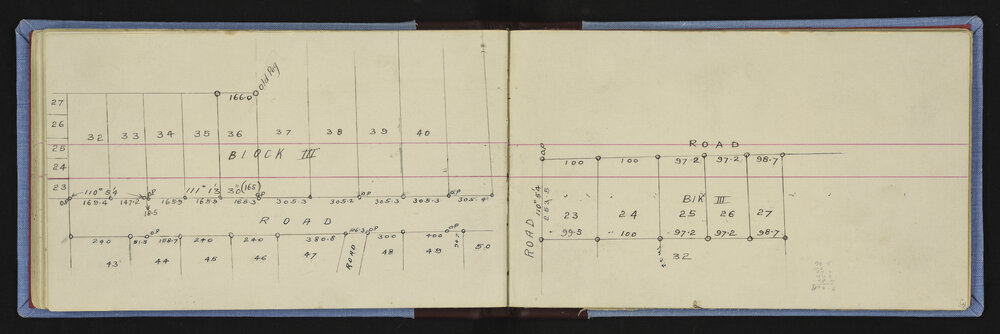 Old Peg
166.0
27
26
32 33 34 35 36 37 38 39 40
25
BLOCK III
24
23
110° 54 O.P 111° 13 30" (165)
O.P 169.4 147.2 165.9 165.9 165.3 O.P 305.3 305.2 O.P 305.3 305.3 O.P 305.4
18.5
ROAD
240 51.5 O.P 188.7 240 240 380.8 46.3 O.P 300 400 O.P
43 44 45 46 47 ROAD 48 49 50
ROAD
O.P
100 100 97.2 97.2 98.7
110° 54
203.5
Blk III
23 24 25 26 27
99.5 100 97.2 97.2 98.7
ROAD
32